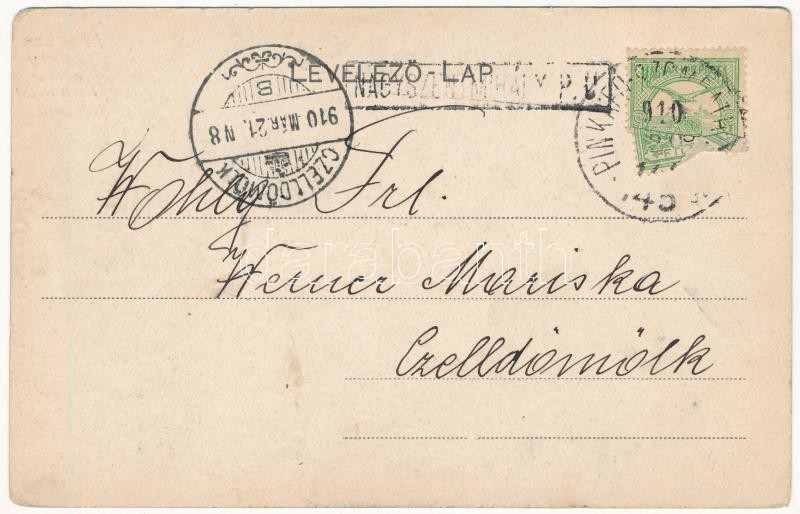 LEVELEZŐ-LAP
NAGYSZENTMIHÁLY P. U.
CZELLDÖMÖLK
910 MÁR. 21. N8
B
910
145
Wohlg Frl.
Werner Mariska
Czelldömölk
darabanth